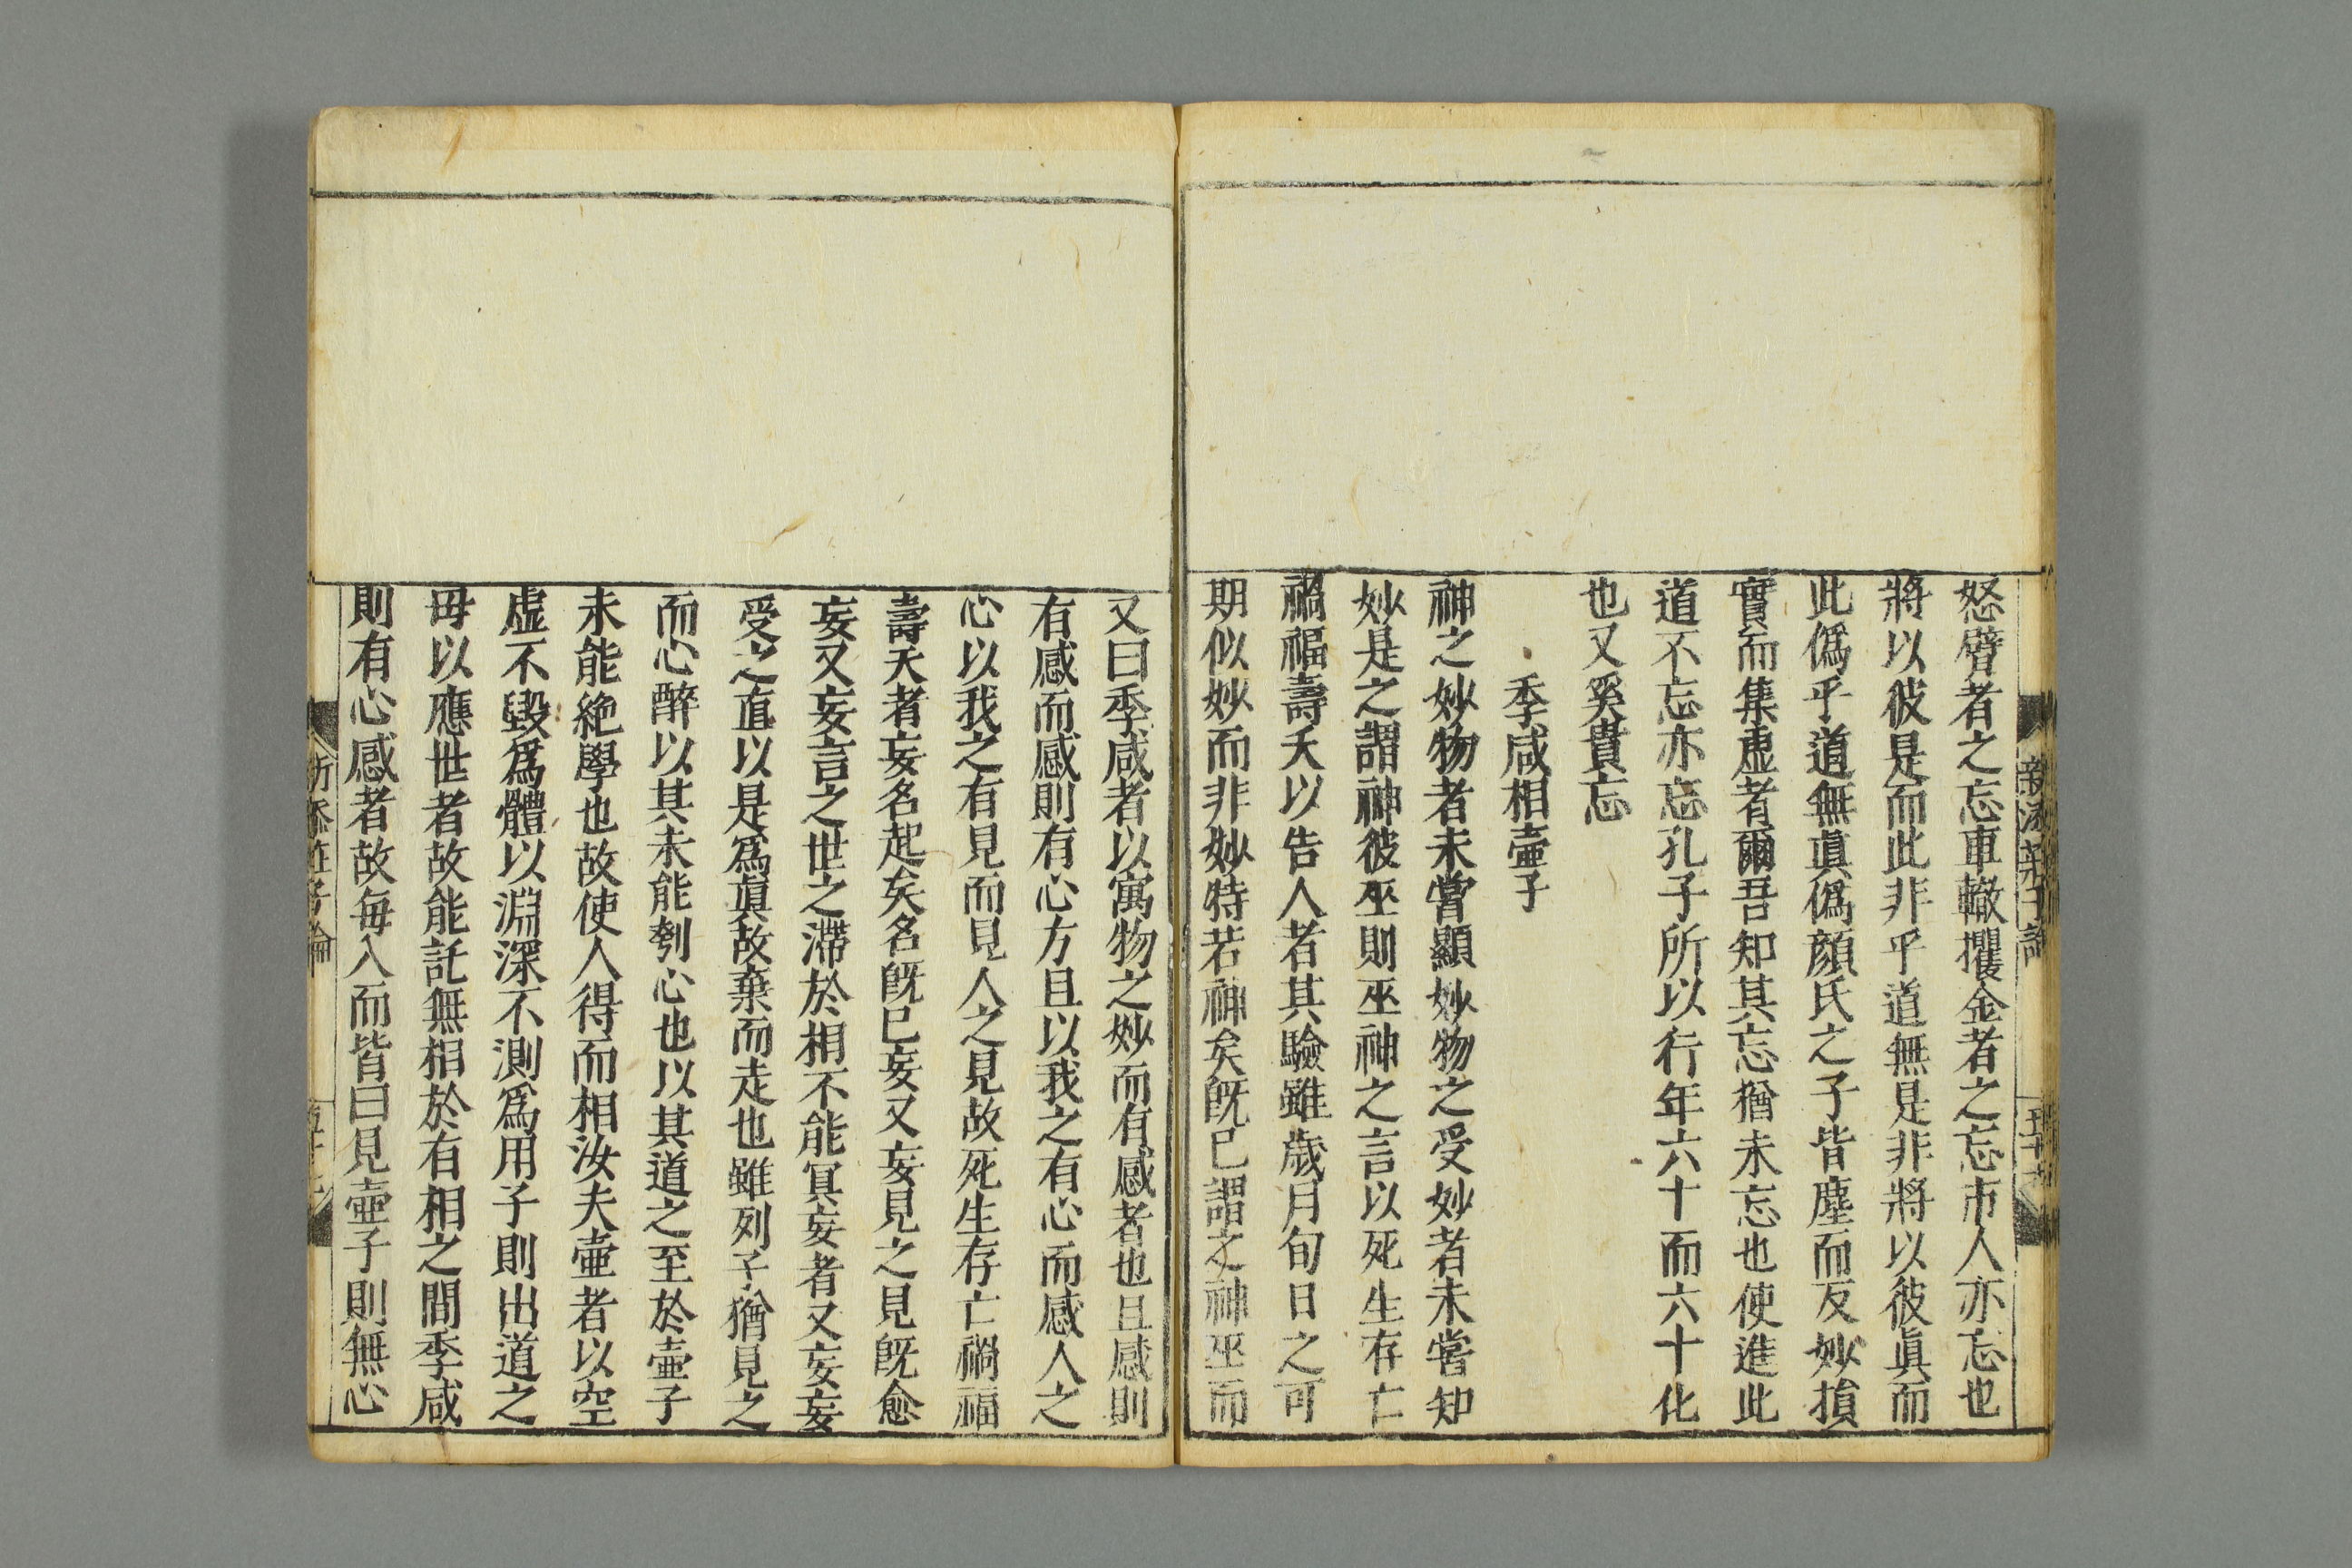 怒臂者之忘車轍攫金者之忘市人亦忘也
將以彼是而此非乎道無是非將以彼眞而
此僞乎道無眞僞顏氏之子皆塵而反妙損
實而集虛者爾吾知其忘猶未忘也使進此
道不忘亦忘孔子所以行年六十而六十化
也又奚貴忘
季咸相壷子
神之妙物者未嘗顯妙物之受妙者未嘗知
妙是之謂神彼巫則巫神之言以死生存亡
禍福壽夭以告人者其驗雖歲月旬日之可
期似妙而非妙特若神矣旣已謂之神巫而
又曰季咸者以寓物之妙而有感者也且感則
有感而感則有心方且以我之有心而感人之
心以我之有見而見人之見故死生存亡禍福
壽夭者妄名起矣名旣已妄又妄見之見旣愈
妄又妄言之世之滯於相不能冥妄者又妄妄
受之直以是爲眞故棄而走也雖列子猶見之
而心醉以其未能刳心也以其道之至於壷子
未能絶學也故使人得而相汝夫壷者以空
虛不毀爲體以淵深不測爲用子則出道之
毋以應世者故能託無相於有相之間季咸
則有心感者故每入而皆曰見壷子則無心